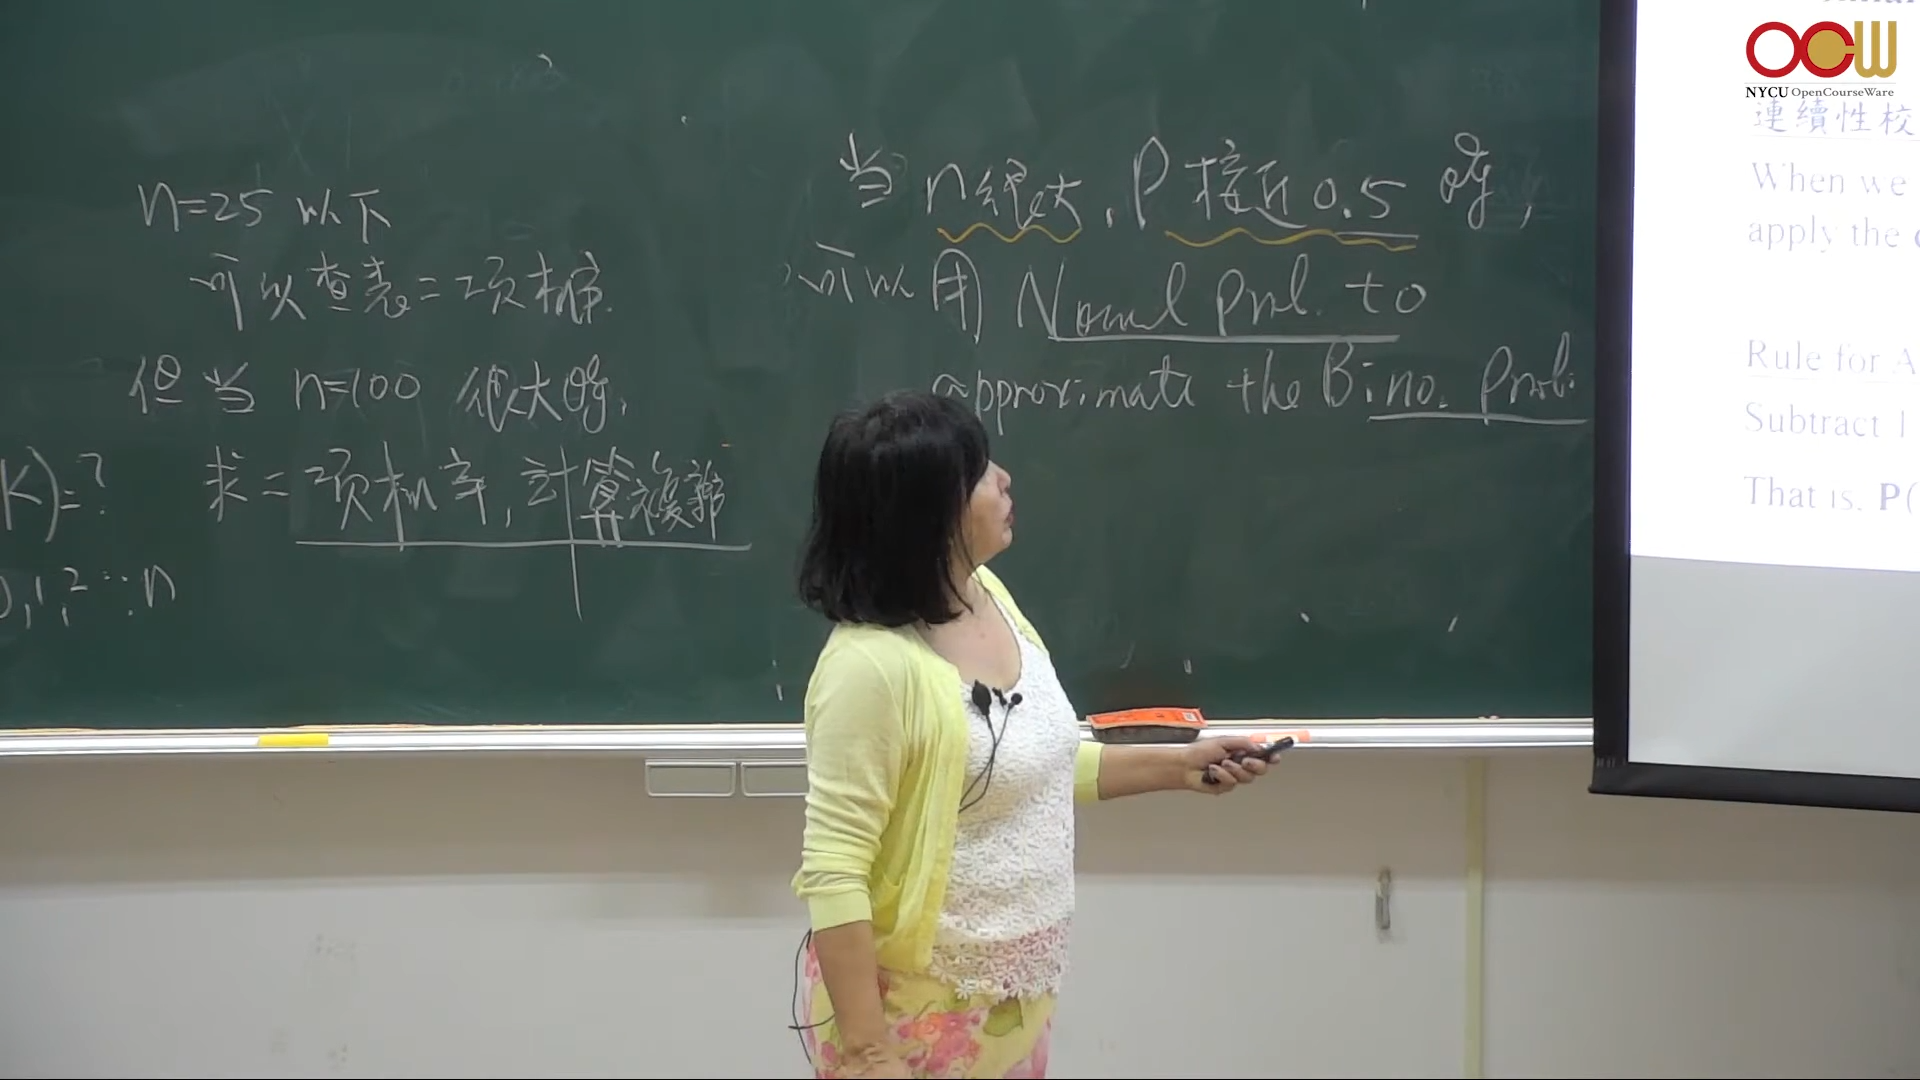 n=25 以下
可以查表=項機率.
但当 n=100 很大時,
K)=? 求=項机率,計算複雜
0,1,2…,n
当 n很大,P接近0.5 時,
可以用 Normal Prob. to
approximate the Bino. Prob.
OCW
NYCU OpenCourseWare
連續性校
When we
apply the
Rule for A
Subtract 1
That is, P(